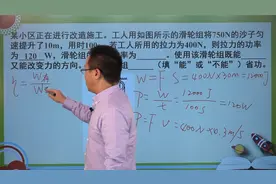 某小区正在进行改造施工。工人用如图所示的滑轮组将750N的沙子匀
速提升了10m,用时100s。若工人所用的拉力为400N,则拉力的功率
为 120 W,滑轮组的 率为 。使用该滑轮组既能
又能改变力的方向, (填“能”或“不能”)省功。
W = F S = 400N×30m = 12000J
P = W/t = 12000J/100s = 120W
P = F v = 400N×0.3m/s
η = W有/W